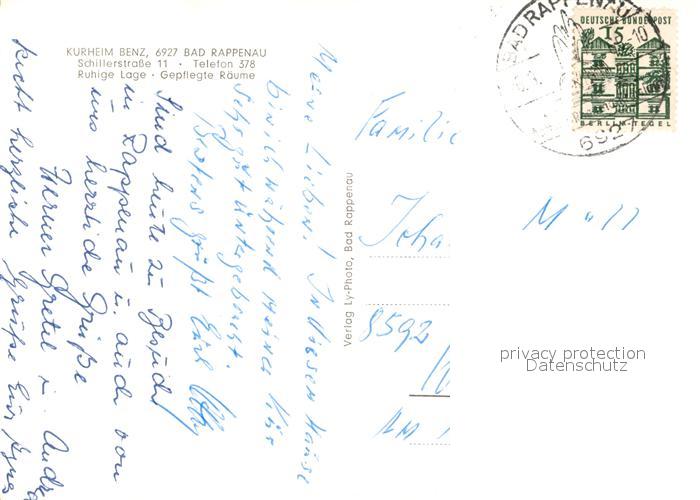 KURHEIM BENZ, 6927 BAD RAPPENAU
Schillerstraße 11 · Telefon 378
Ruhige Lage · Gepflegte Räume
Meine Lieben! In diesem Hause
bin ich während meiner Kur
sehr gut untergebracht.
Bestens grüßt Euch
Sind heute zu Besuch
in Rappenau u. auch von
uns herzliche Grüße
Werner Gretel u.
herzliche Grüße
Verlag Ly-Photo, Bad Rappenau
Familie
Müll
8592
BAD RAPPENAU
692
DEUTSCHE BUNDESPOST
15
BERLIN-TEGEL
privacy protection
Datenschutz